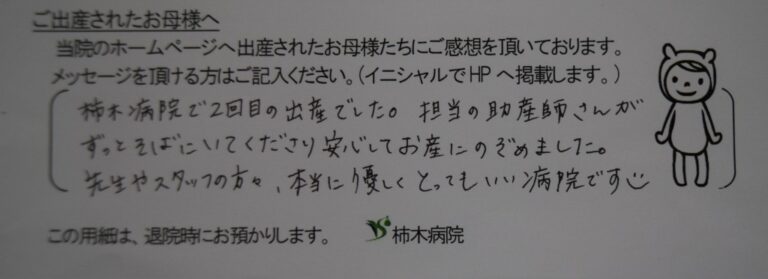 ご出産されたお母様へ
当院のホームページへ出産されたお母様たちにご感想を頂いております。
メッセージを頂ける方はご記入ください。(イニシャルでHPへ掲載します。)
柿木病院で2回目の出産でした。担当の助産師さんが
ずっとそばにいてくださり安心してお産にのぞめました。
先生やスタッフの方々、本当に優しくとってもいい病院です
この用紙は、退院時にお預かりします。 柿木病院